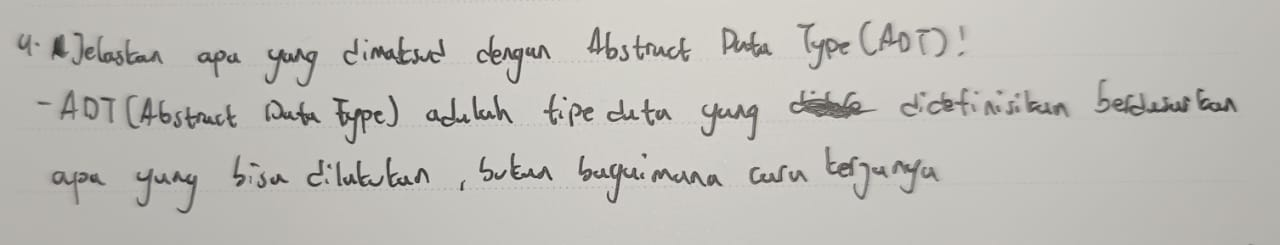 4. Jelaskan apa yang dimaksud dengan Abstract Data Type (ADT)!
- ADT (Abstract Data Type) adalah tipe data yang didefinisikan berdasarkan
apa yang bisa dilakukan, bukan bagaimana cara kerjanya